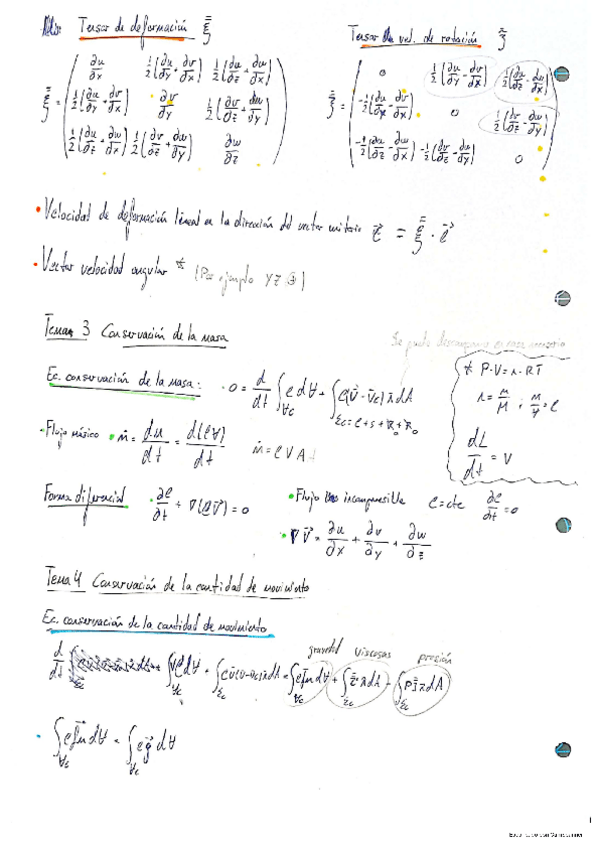 Tensor de deformación ξ̿
Tensor de vel. de rotación ξ̿
ξ̿ = ( ∂u/∂x   1/2(∂u/∂y + ∂v/∂x)   1/2(∂u/∂z + ∂w/∂x)
1/2(∂u/∂y + ∂v/∂x)   ∂v/∂y   1/2(∂v/∂z + ∂w/∂y)
1/2(∂u/∂z + ∂w/∂x)   1/2(∂v/∂z + ∂w/∂y)   ∂w/∂z )
ξ̿ = ( 0   1/2(∂u/∂y - ∂v/∂x)   1/2(∂u/∂z - ∂w/∂x)
-1/2(∂u/∂y - ∂v/∂x)   0   1/2(∂v/∂z - ∂w/∂y)
-1/2(∂u/∂z - ∂w/∂x)   -1/2(∂v/∂z - ∂w/∂y)   0 )
• Velocidad de deformación lineal en la dirección del vector unitario e⃗ = ξ̿ · e⃗
• Vector velocidad angular * (Por ejemplo YZ)
Tema 3 Conservación de la masa
Ec. conservación de la masa: · 0 = d/dt ∫Vc ρ dV + ∫Σc ρ(v⃗ - v⃗c) n dA
* P·V = n·RT
n = m/M ; m/V = ρ
dL/dt = V
• Flujo másico • ṁ = dm/dt = d(ρV)/dt   ṁ = ρ V A
Forma diferencial • ∂ρ/∂t + ∇(ρv⃗) = 0
• Flujo incompresible   ρ = cte   ∂ρ/∂t = 0
• ∇v⃗ = ∂u/∂x + ∂v/∂y + ∂w/∂z
Tema 4 Conservación de la cantidad de movimiento
Ec. conservación de la cantidad de movimiento
gravedad   viscosas   presión
d/dt ∫Vc v⃗ρ dV + ∫Σc ρv⃗(v - vc)n dA = ∫Vc ρf⃗m dV + ∫Σc τ̿·n dA - ∫Σc P I̿ n dA
• ∫Vc ρf⃗m dV = ∫Vc ρg⃗ dV